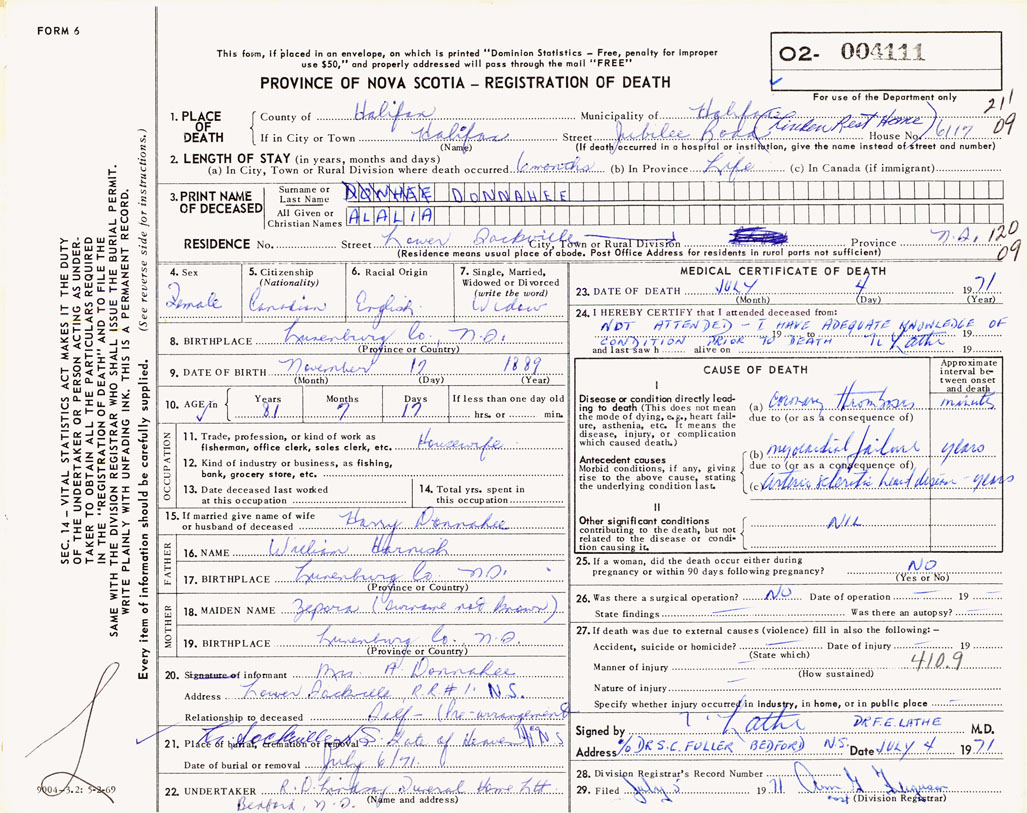 FORM 6
This form, if placed in an envelope, on which is printed "Dominion Statistics – Free, penalty for improper
use $50," and properly addressed will pass through the mail "FREE"
PROVINCE OF NOVA SCOTIA – REGISTRATION OF DEATH
O2- 004111
For use of the Department only
211
09
1. PLACE OF DEATH
County of Halifax Municipality of Halifax
If in City or Town Halifax Street Jubilee Road (Linden Rest Home) House No. 6117
(Name) (If death occurred in a hospital or institution, give the name instead of street and number)
2. LENGTH OF STAY (in years, months and days)
(a) In City, Town or Rural Division where death occurred 6 months (b) In Province Life (c) In Canada (if immigrant)
3. PRINT NAME OF DECEASED
Surname or Last Name DONNAHEE
All Given or Christian Names ALALIA
RESIDENCE No. Street Lower Sackville City, Town or Rural Division Province N.S. 120
09
(Residence means usual place of abode. Post Office Address for residents in rural parts not sufficient)
4. Sex
Female
5. Citizenship
(Nationality)
Canadian
6. Racial Origin
English
7. Single, Married,
Widowed or Divorced
(write the word)
Widow
8. BIRTHPLACE Lunenburg Co. N.S.
(Province or Country)
9. DATE OF BIRTH November 17 1889
(Month) (Day) (Year)
10. AGE in Years Months Days If less than one day old
81 7 17 hrs. or min.
OCCUPATION
11. Trade, profession, or kind of work as
fisherman, office clerk, sales clerk, etc. Housewife
12. Kind of industry or business, as fishing,
bank, grocery store, etc.
13. Date deceased last worked
at this occupation
14. Total yrs. spent in
this occupation
15. If married give name of wife
or husband of deceased Harry Donnahee
FATHER
16. NAME William Harnish
17. BIRTHPLACE Lunenburg Co N.S.
MOTHER
18. MAIDEN NAME Zepora (Surname not known)
19. BIRTHPLACE Lunenburg Co. N.S.
(Province or Country)
20. Signature of informant Mrs A Donnahee
Address Lower Sackville R.R # 1. N.S.
Relationship to deceased Self - (Pre-arrangement
21. Place of burial, cremation or removal Gate of Heaven
Date of burial or removal July 6/71.
22. UNDERTAKER R.D. Lindsay Funeral Home Ltt
(Name and address)
Bedford, N.S.
MEDICAL CERTIFICATE OF DEATH
23. DATE OF DEATH JULY 4 1971
(Month) (Day) (Year)
24. I HEREBY CERTIFY that I attended deceased from:
NOT ATTENDED – I HAVE ADEQUATE KNOWLEDGE OF
19 to 19
CONDITION PRIOR TO DEATH Lathe
and last saw h alive on 19
CAUSE OF DEATH
Approximate interval between onset and death
I
Disease or condition directly leading to death (This does not mean the mode of dying, e.g., heart failure, asthenia, etc. It means the disease, injury, or complication which caused death.)
(a) Coronary thrombosis minutes
due to (or as a consequence of)
Antecedent causes
Morbid conditions, if any, giving rise to the above cause, stating the underlying condition last.
(b) myocardial failure years
due to (or as a consequence of)
(c) arteriosclerotic heart disease - years
II
Other significant conditions contributing to the death, but not related to the disease or condition causing it.
NIL
25. If a woman, did the death occur either during
pregnancy or within 90 days following pregnancy? NO
(Yes or No)
26. Was there a surgical operation? NO Date of operation 19
State findings Was there an autopsy?
27. If death was due to external causes (violence) fill in also the following: –
Accident, suicide or homicide? Date of injury 19
(State which)
410.9
Manner of injury
(How sustained)
Nature of injury
Specify whether injury occurred in industry, in home, or in public place
Signed by Lathe DR F.E. LATHE M.D.
Address c/o DR S.C. FULLER BEDFORD N.S. Date JULY 4 1971
28. Division Registrar's Record Number
29. Filed July 5 1971 Ann G Ferguson
(Division Registrar)
SEC. 14 – VITAL STATISTICS ACT MAKES IT THE DUTY
OF THE UNDERTAKER OR PERSON ACTING AS UNDER-
TAKER TO OBTAIN ALL THE PARTICULARS REQUIRED
IN THE "REGISTRATION OF DEATH" AND TO FILE THE
SAME WITH THE DIVISION REGISTRAR WHO SHALL ISSUE THE BURIAL PERMIT.
WRITE PLAINLY WITH UNFADING INK. THIS IS A PERMANENT RECORD.
Every item of information should be carefully supplied. (See reverse side for instructions.)
9004–3.2: 5-2-69